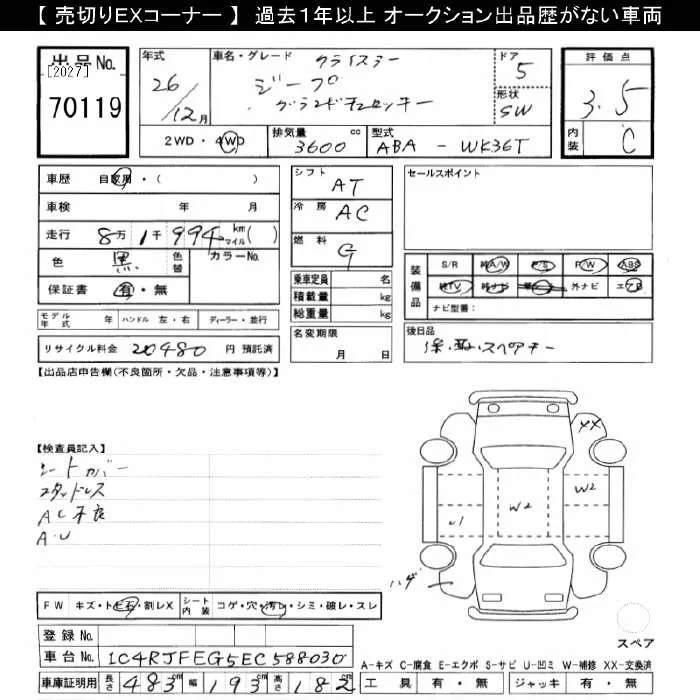 【 売切りEXコーナー 】 過去1年以上 オークション出品歴がない車両
出品No.
[2027]
70119
年式
26/12月
車名・グレード
クライスラー
ジープ
グランドチェロキー
ドア
5
形状
SW
評価点
3.5
内装
C
2WD・4WD
排気量 3600 cc
型式 ABA - WK36T
車歴 自家用・( )
車検 年 月
走行 8万 1千 994 km マイル ( )
色 黒 色替 カラーNo.
保証書 有・無
シフト AT
冷房 AC
燃料 G
乗車定員 名
積載量 kg
総重量 kg
セールスポイント
装備品
S/R 純A/W P/S P/W ABS
純TV 純ナビ 外ナビ エアB
ナビ型番:
モデル年式 年 ハンドル 左・右 ディーラー・並行
名変期限 月 日
後日品
保・取・スペアキー
リサイクル料金 20480 円 預託済
【出品店申告欄(不良箇所・欠品・注意事項等)】
【検査員記入】
シートカバー
スタッドレス
AC不良
A.U
XX
W2
W2
U1
ハゲ
スペア
FW キズ・トビ石・割レX
シート内装 コゲ・穴・汚レ・シミ・破レ・スレ
登録No.
車台No. 1C4RJFEG5EC588030
車庫証明用 長さ 483 幅 193 高さ 182
A-キズ C-腐食 E-エクボ S-サビ U-凹ミ W-補修 XX-交換済
工具 有・無 ジャッキ 有・無